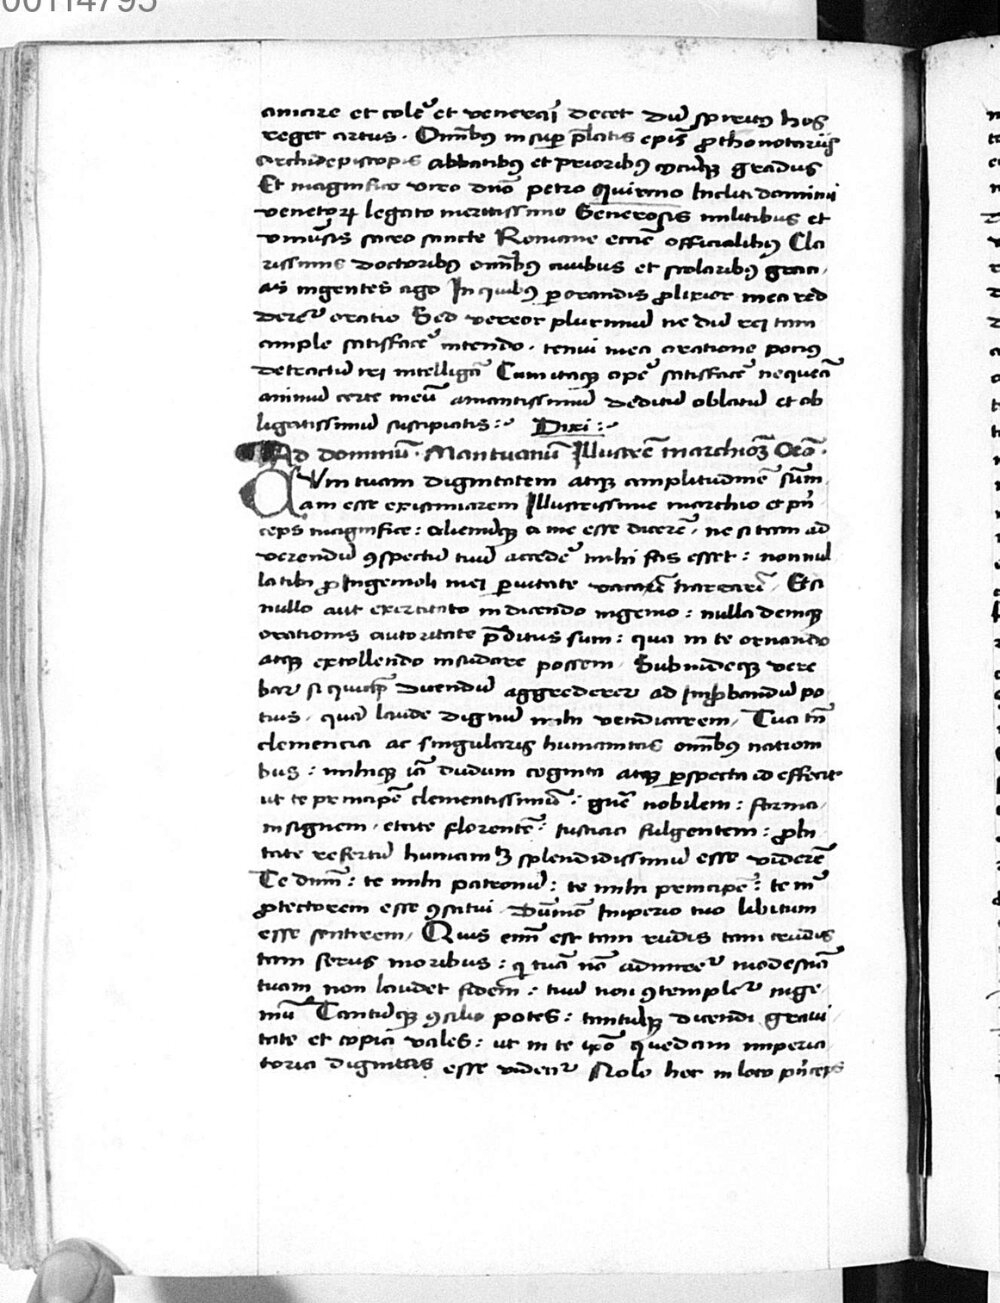 00114795
amare et colē et venerāj decet dū spiritus hos
reget artus. Omībus insup p̄latis ep̄is prothonotarijs
Archidepiscopis abbatibus et prioribus gradus
Et magnifico viro dn̄o petro Quirino Incliti dominij
venetoꝝ legato meritissimo Generosis militibus et
sacro sancte Romane eccl̄ie officialibus Cla
rissimis doctoribus omībus civibus et scolaribus gracı
as ingentes ago In quibus ꝑorandis prolixior mea red
deret oratio Sed vereor plurimū ne dū rej tam
ample satisfacē intendo. tenui mea oratione pocius
detractū rej intelligā Cum itaque opē satisfacē nequeā
animū certe meū amantissimū deditū oblatū et ob
ligatissimū suscipiatis :~ Dixi :~
Ad dominū Mantuanū Illustrē marchionē Orō.
Qvm tuam dignitatem atque amplitudinē sūm
am esse existimarem Illustrissime marchio et pn̄
ceps magnifice : alienūque a me esse dicerē, ne si tam ad
verendū ꝯspectū tuū accedē mihi fas esset : non nul
la tibi pro Ingenioli mej ꝑvitate Et a
nullo aut exercitato in dicendo ingenio : nulla denique
orationis autoritate p̄ditus sum : qua in te ornando
atque extollendo insudare possem, Subindeque vere
bar si dicendū aggrederer ad Improbandū po
tius, quā laude dignū mihi vendicarem, Tua tn̄
clemencia ac singularis humanitas omībus nationi
bus : mihique iā dudum cognita atque ꝑspecta id effecit
ut te principē clementissimū : genē nobilem : forma
insignem, etate florentē : Iusticia fulgentem : probi
tate refertū humanitate splendidissimū esse viderē
Te dīum : te mihi patronū : te mihi principē : te mī
protectorem esse ꝯstitui Imperio tuo libitum
esse sentirem, Quis enī est tam rudis tam crudis
tam ferus moribus : qui tuā nō admiret modestiā
tuam non laudet fidem : tuū non ꝯtemplet inge
niū Tantūque ꝯsilio potes : tantūque dicendi gravi
tate et copia vales : ut in te ip̄o quedam imperia
toria dignitas esse videat Nolo hec in loco pn̄ceps